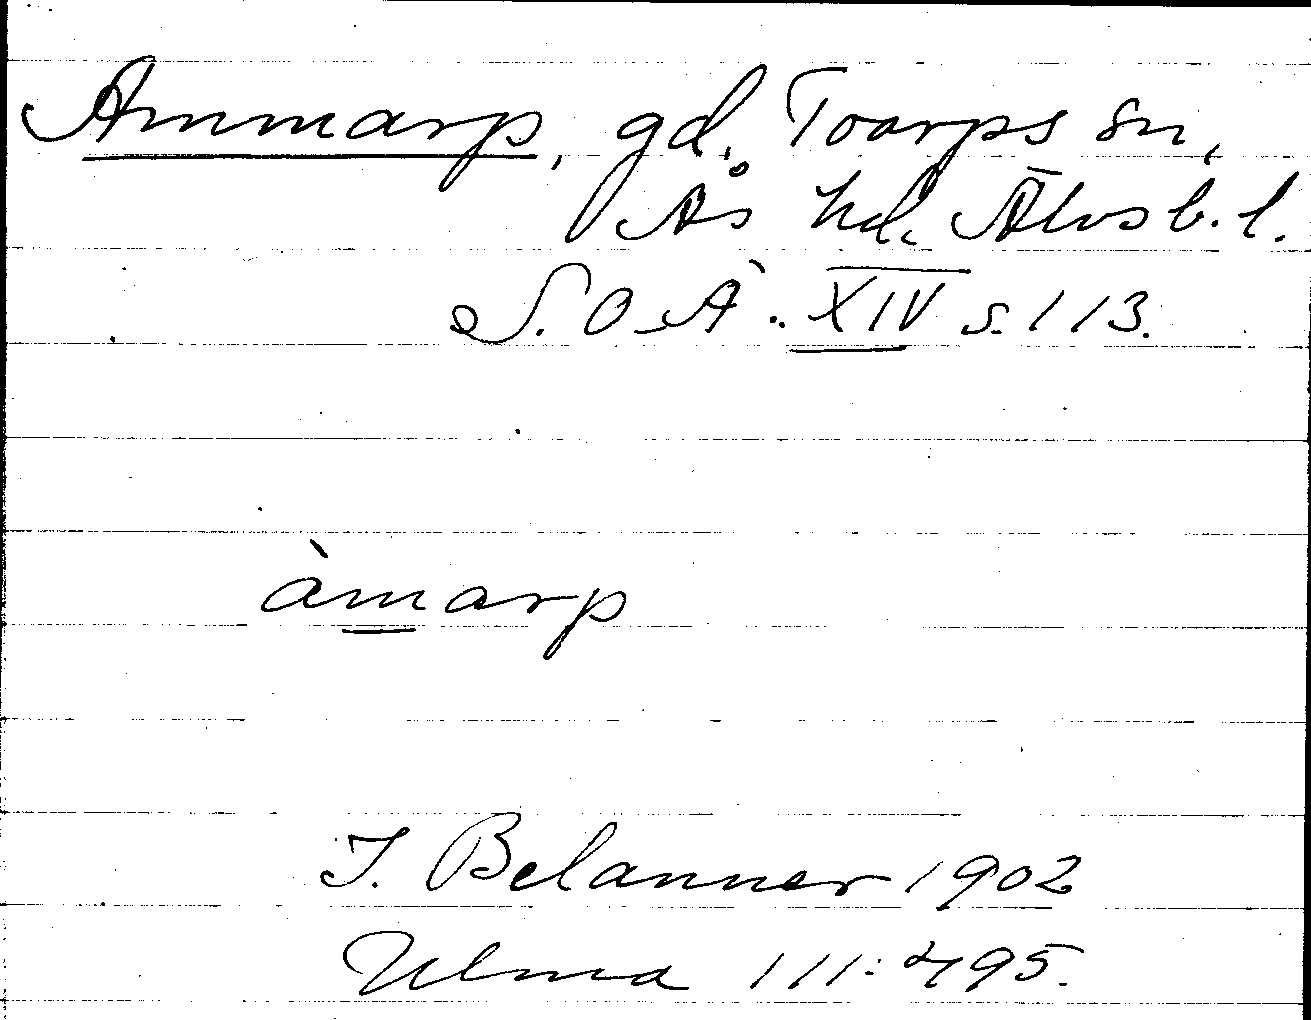 Ammarp, gd, Toarps sn,
Ås hd. Älvsb. l.
S. O. Ä. XIV s. 113.
àmarp
J. Belanner 1902
Ulma 111:495.